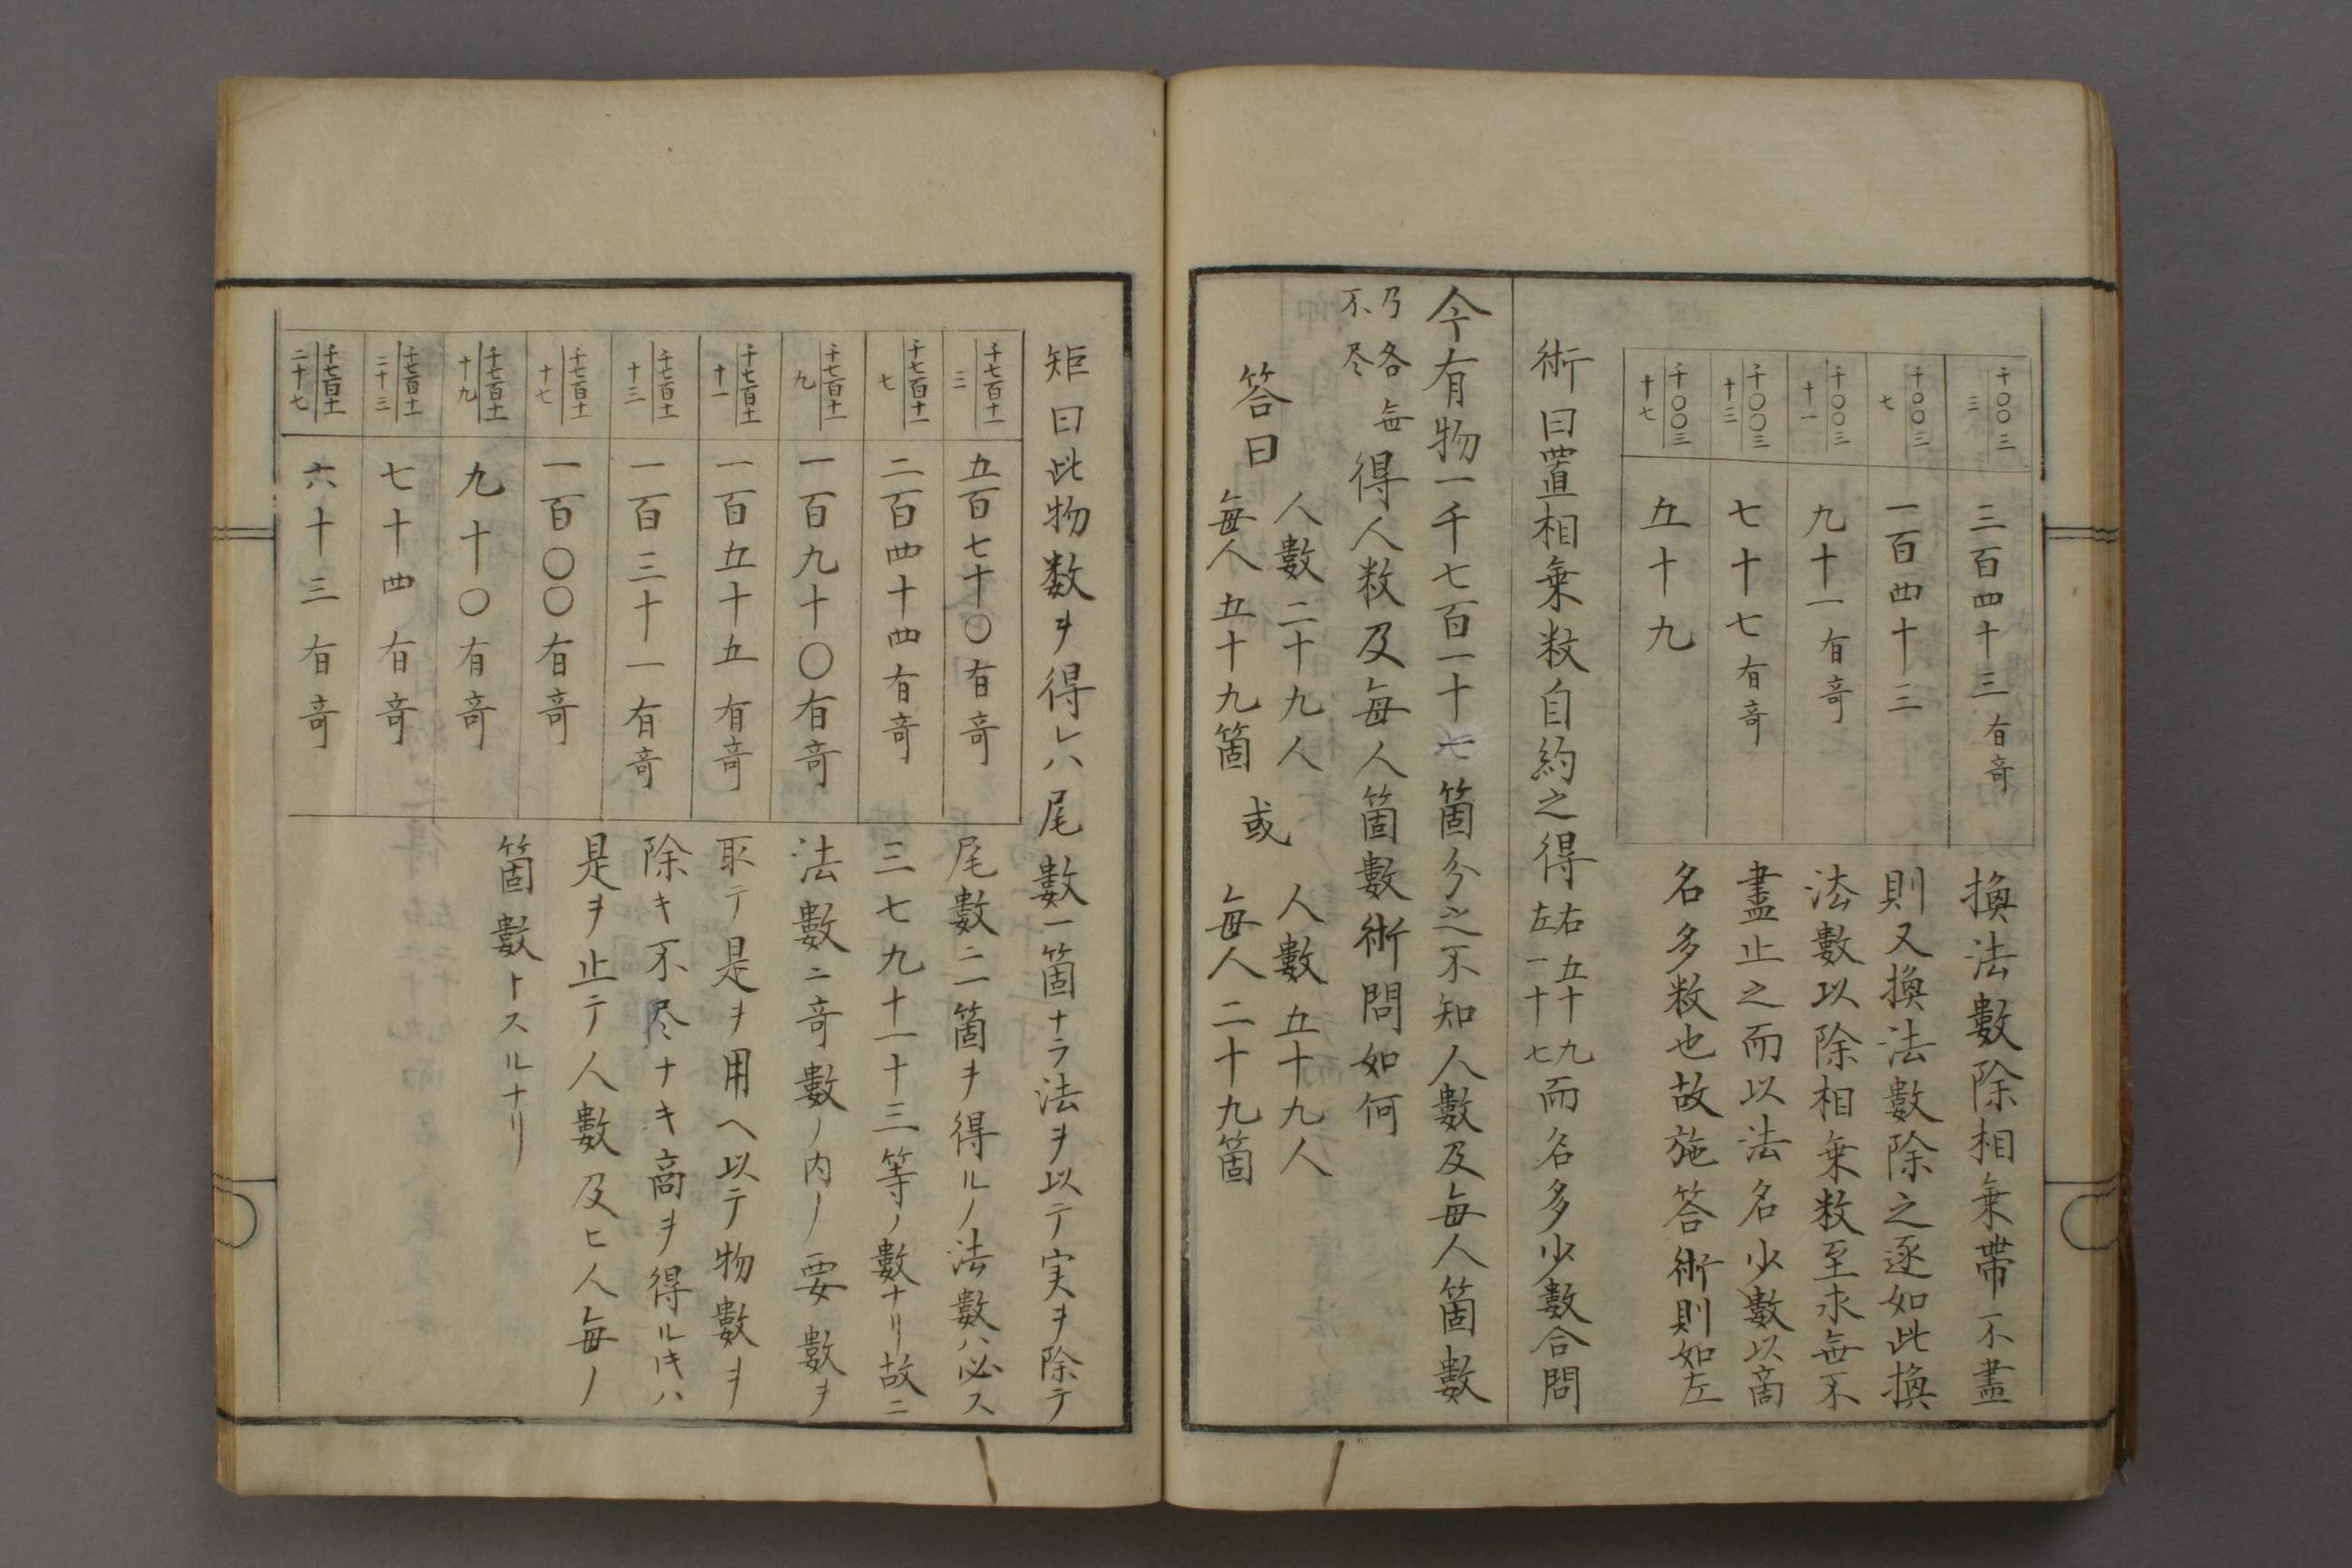 千〇〇三
三
三百四十三有奇
千〇〇三
七
一百四十三
千〇〇三
十一
九十一有奇
千〇〇三
十三
七十七有奇
千〇〇三
十七
五十九
換法數除相乗帶一不盡
則又換法數除之逐如此換
法數以除相乗数至求無不
盡止之而以法名少數以商
名多数也故施答術則如左
術曰置相乗数自約之得右五十九左一十七而名多少數合問
今有物一千七百一十七箇分之不知人數及毎人箇數
乃各無不尽得人数及毎人箇數術問如何
答曰
人數二十九人
毎人五十九箇
或
人數五十九人
毎人二十九箇
矩曰此物数ヲ得レハ尾數一箇ナラ法ヲ以テ実ヲ除テ
千七百十一
三
五百七十〇有奇
千七百十一
七
二百四十四有奇
千七百十一
九
一百九十〇有奇
千七百十一
十一
一百五十五有奇
千七百十一
十三
一百三十一有奇
千七百十一
十七
一百〇〇有奇
千七百十一
十九
九十〇有奇
千七百十一
二十三
七十四有奇
千七百十一
二十七
六十三有奇
尾數二箇ヲ得ルノ法數ハ必ス
三七九十一十三等ノ數ナリ故ニ
法數ニ奇數ノ内ノ要數ヲ
取テ是ヲ用ヘ以テ物數ヲ
除キ不尽ナキ商ヲ得ルキハ
是ヲ止テ人數及ヒ人毎ノ
箇數トスルナリ